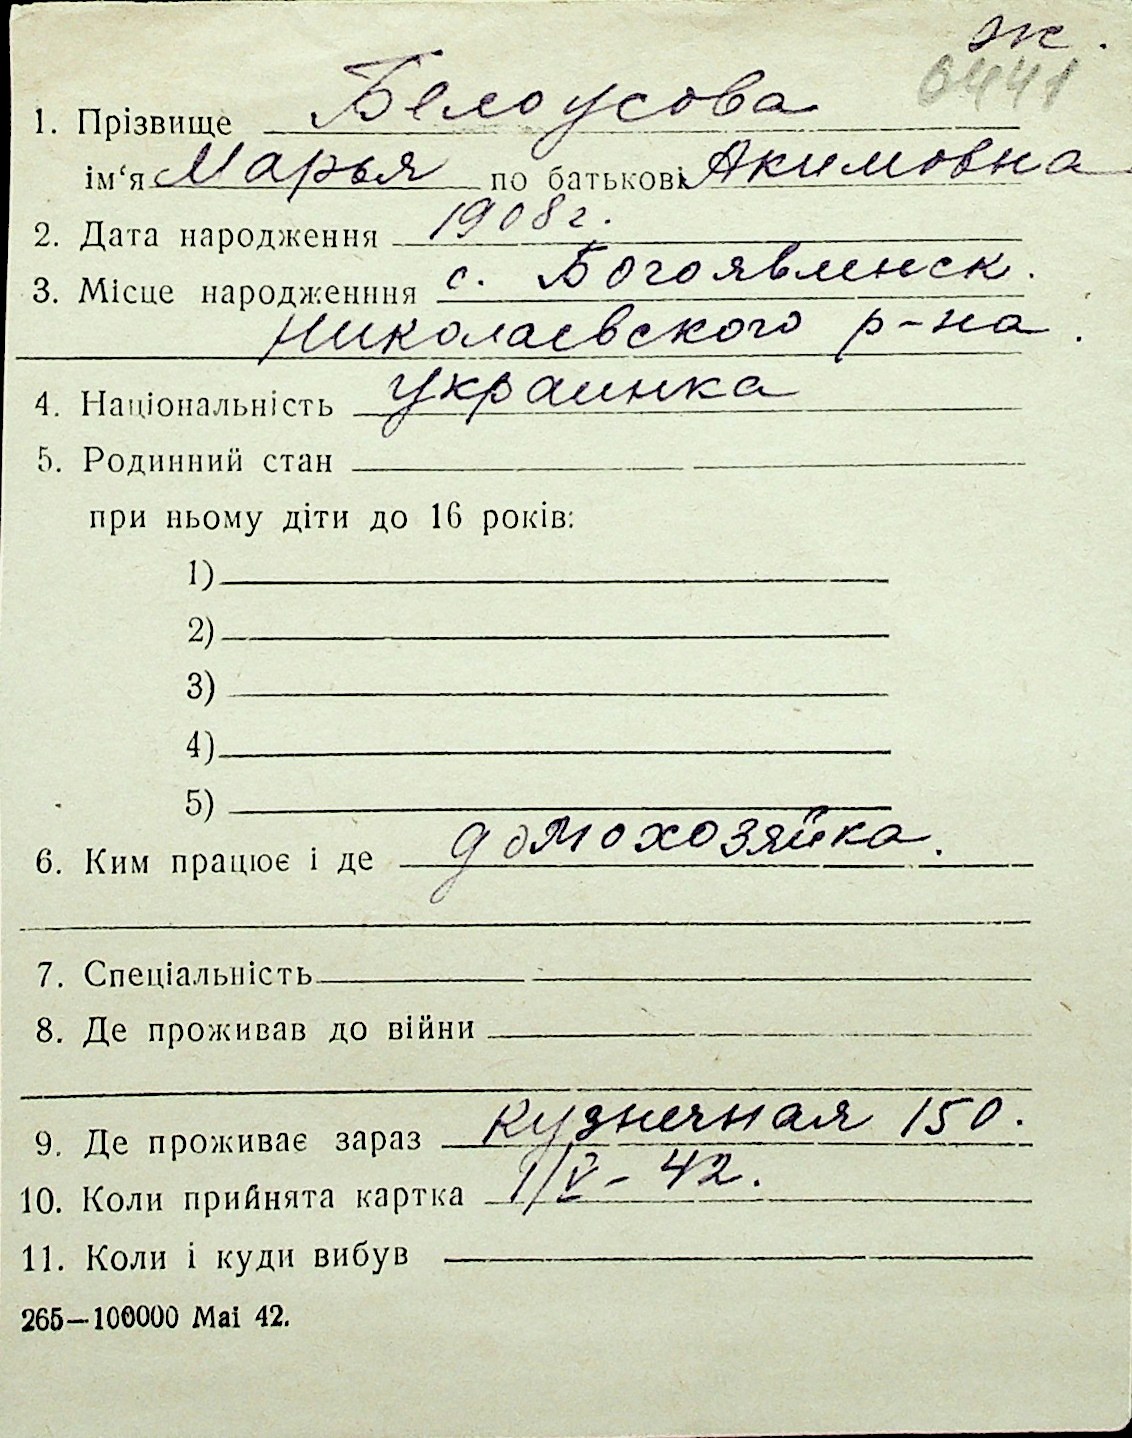 ж.
6441
1. Прізвище Белоусова
ім‘я Марья по батькові Акимовна
2. Дата народження 1908 г.
3. Місце народженння с. Богоявленск.
Николаевского р-на.
4. Національність украинка
5. Родинний стан
при ньому діти до 16 років:
1)
2)
3)
4)
5)
6. Ким працює і де домохозяйка.
7. Спеціальність
8. Де проживав до війни
9. Де проживає зараз Кузнечная 150.
10. Коли прийнята картка 1/V - 42.
11. Коли і куди вибув
265—100000 Mai 42.